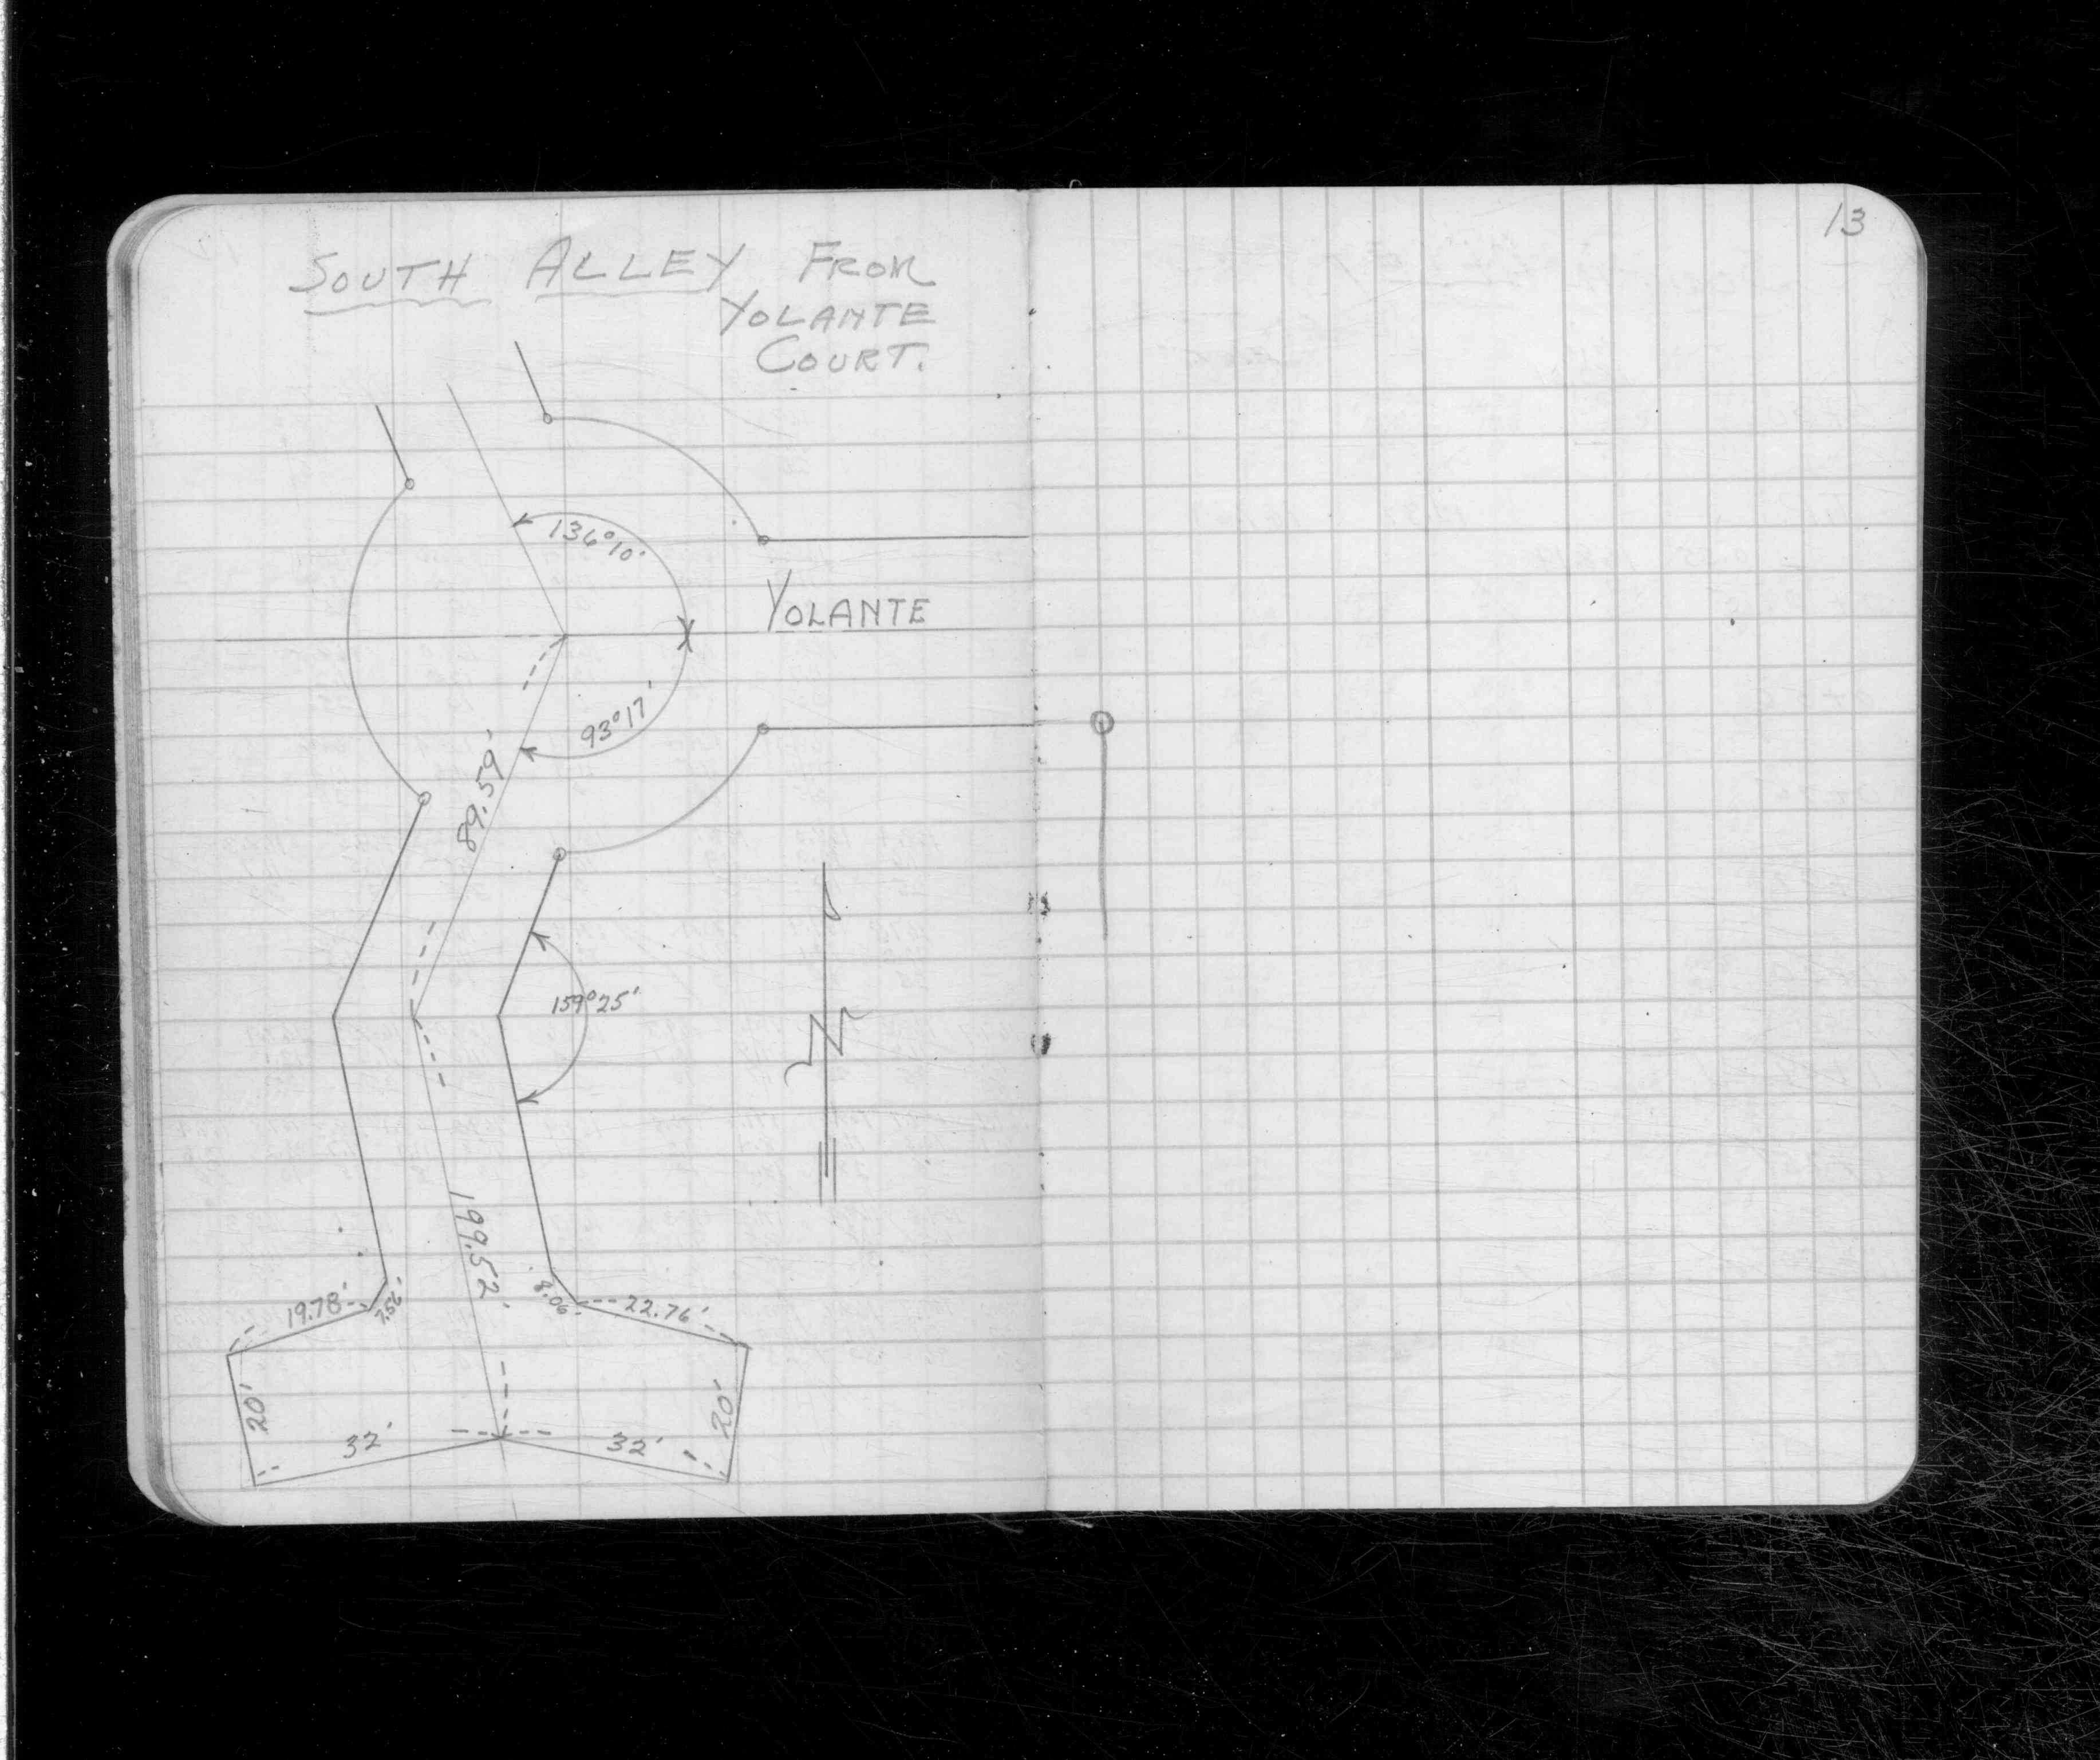 13
SOUTH ALLEY FROM
YOLANTE
COURT.
136°10'
YOLANTE
93°17'
89.59'
159°25'
199.52'
19.78'
7.56'
8.06'
22.76'
20'
20'
32'
32'
N